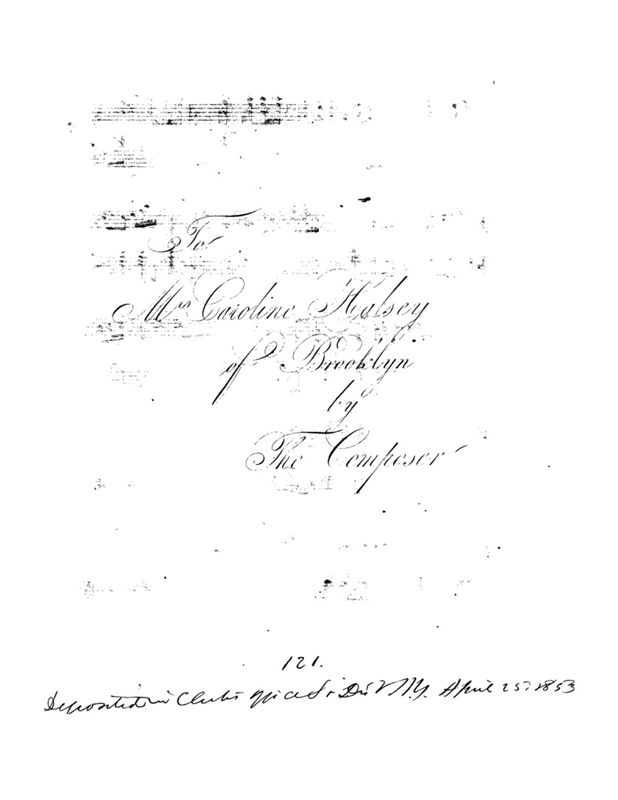 To
Mrs Caroline Halsey
of Brooklyn
by
The Composer
121.
Deposited in Clerks office So. Dis N.Y. April 25. 1853